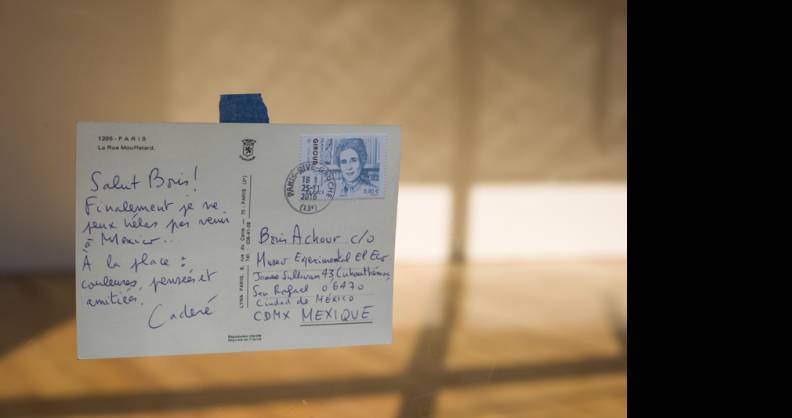 1395 - PARIS
La Rue Mouffetard.
Salut Boris!
Finalement je ne
peux hélas pas venir
à Mexico..
À la place :
couleurs, pensées et
amitiés.
Cadéré
LYNA PARIS, 8, rue du Caire — 75 - PARIS (2e)
Tél. : 236-41-28
GIROUD
PARIS-RIVE-GAUCHE
18 H
25-11
2016
Boris Achour c/o
Museo Experimental El Eco
James Sullivan 43 Cuauhtémoc
San Rafael 06470
Ciudad de MÉXICO
CDMX MEXIQUE